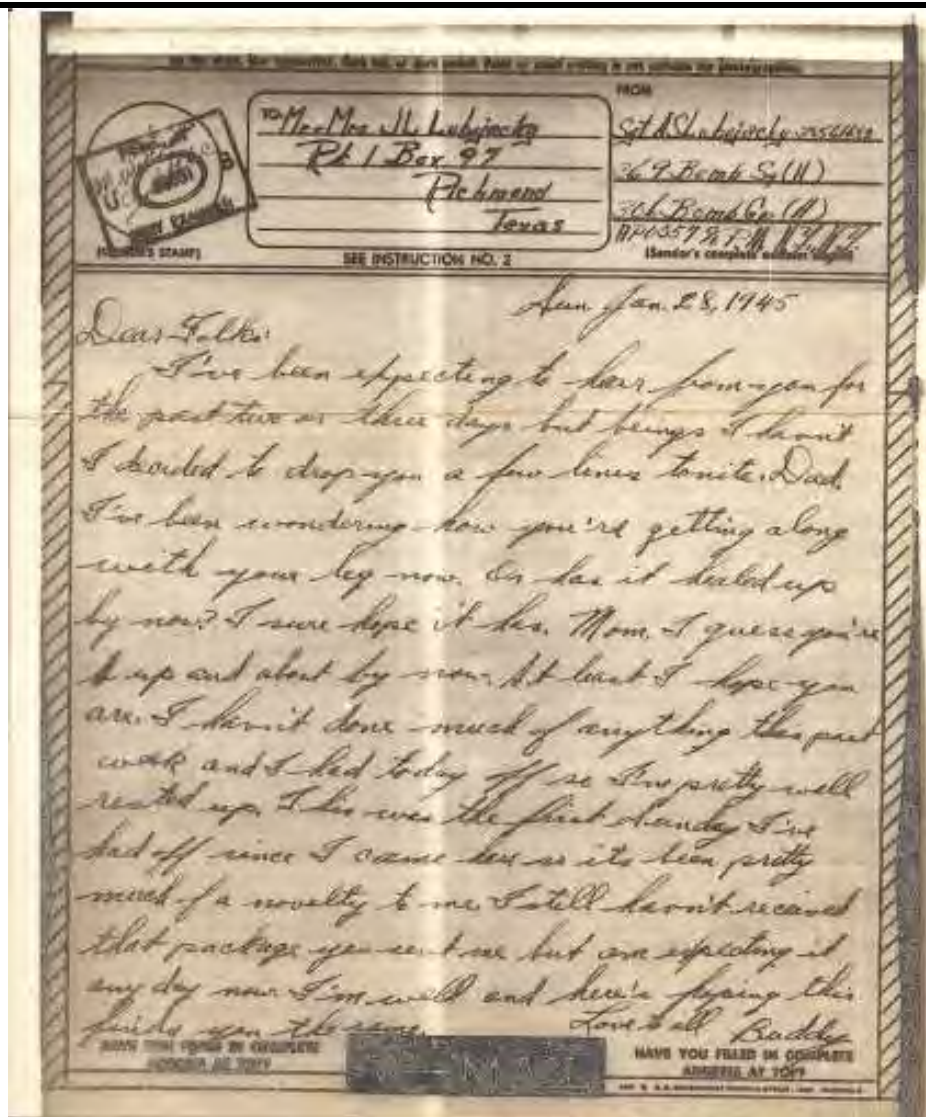 TO Mr. Mrs J L Lubojacky
Rt 1 Box 97
Richmond
Texas
FROM
Sgt A S Lubojacky
369 Bomb Sq (H)
306 Bomb Gp (H)
APO 557 % P.M. N.Y. N.Y.
(Sender's complete address above)
(CENSOR'S STAMP)
SEE INSTRUCTION NO. 2
Sun Jan. 28, 1945
Dear Folks:
I've been expecting to hear from you for
the past two or three days but beings I havn't
I decided to drop you a few lines tonite. Dad,
I've been wondering how you're getting along
with your leg now. Or has it healed up
by now? I sure hope it has. Mom, I guess you're
up and about by now. At least I hope you
are. I havn't done much of anything this past
week and I had today off so I'm pretty well
rested up. This was the first Sunday I've
had off since I came here so its been pretty
much of a novelty to me. I still havn't received
that package you sent me but am expecting it
any day now. I'm well and here's hoping this
finds you the same.
Love to all Buddy
HAVE YOU FILLED IN COMPLETE
ADDRESS AT TOP?
V-MAIL
HAVE YOU FILLED IN COMPLETE
ADDRESS AT TOP?